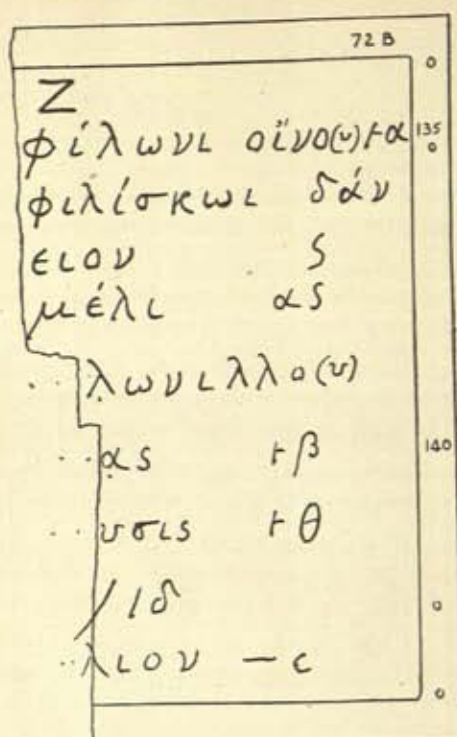 72 B
Z
φίλωνι οἴνο(υ) ⊢α 135
φιλίσκωι δάν
ειον ς
μέλι ας
. . λωνιλλο(υ)
. . ας ⊢β 140
. . υσις ⊢θ
/ ιδ
. . λιον — c